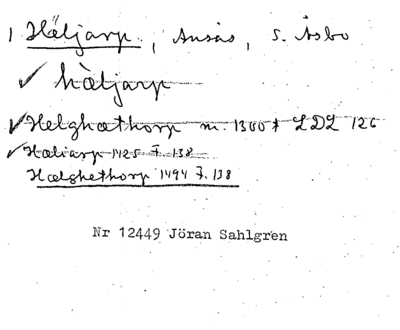 1 Häljarp, Ausås, S. Åsbo
✓ hàljarp
✓ Helghæthorp m. 1300 t LDL 126
✓ Hæliarp 1425 F. 138
Hælghethorp 1494 F. 138
Nr 12449 Jöran Sahlgren